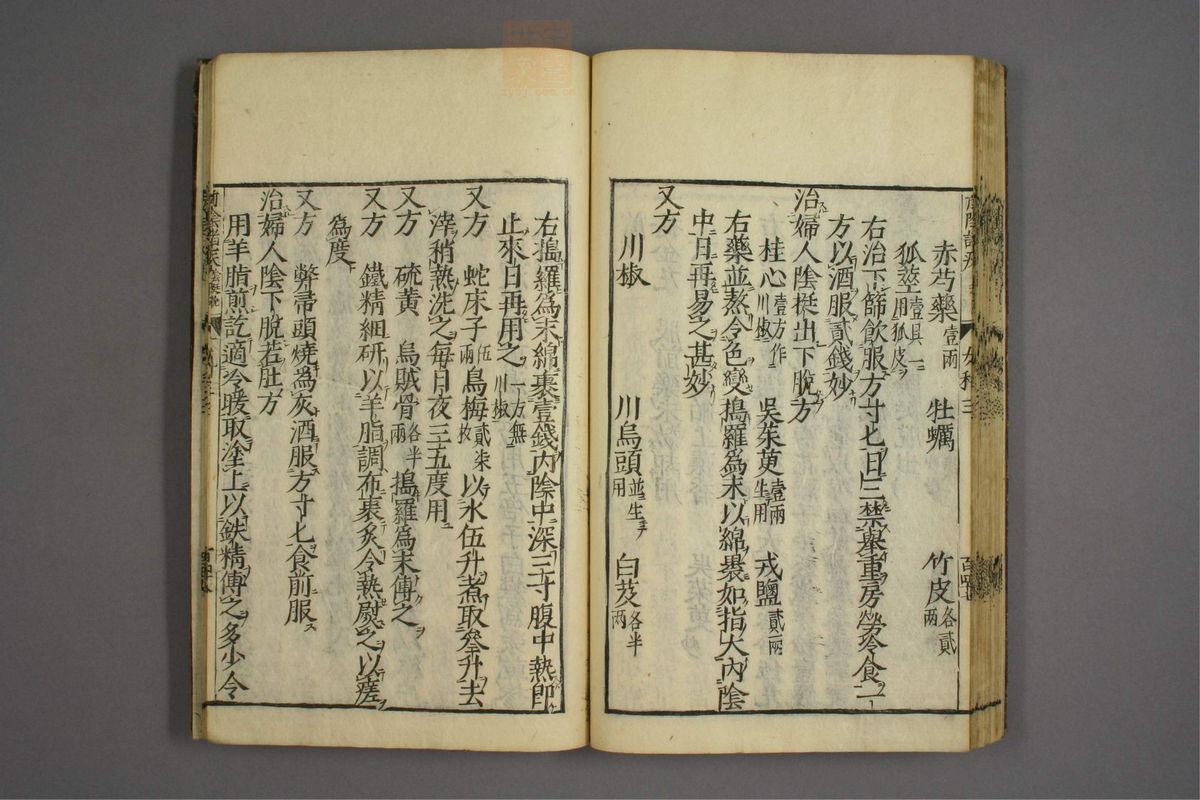 赤芍藥壹兩　牡蠣　竹皮各貳兩
狐莖壹具一用狐皮
右治下篩飲服方寸匕日三禁舉重房勞冷食一
方以酒服貳錢妙
治婦人陰挺出下脫方
桂心壹方作川椒　吳茱萸壹兩生用　戎鹽貳兩
右藥並熬令色變搗羅為末以綿裹如指大內陰
中日再易之甚妙
又方
川椒　川烏頭並生用　白芨各半兩
右搗羅為末綿裹壹錢內陰中深三寸腹中熱即
止來日再用之一方無川椒
又方　蛇床子伍兩烏梅貳柒枚以水伍升煮取叄升去
滓稍熱洗之每日夜三五度用
又方　硫黃　烏賊骨各半兩　搗羅為末傅之
又方　鐵精細研以羊脂調布裹炙令熱熨之以瘥
為度
又方　弊帚頭燒為灰酒服方寸匕食前服
治婦人陰下脫若肚方
用羊脂煎訖適冷暖取塗上以鉄精傅之多少令